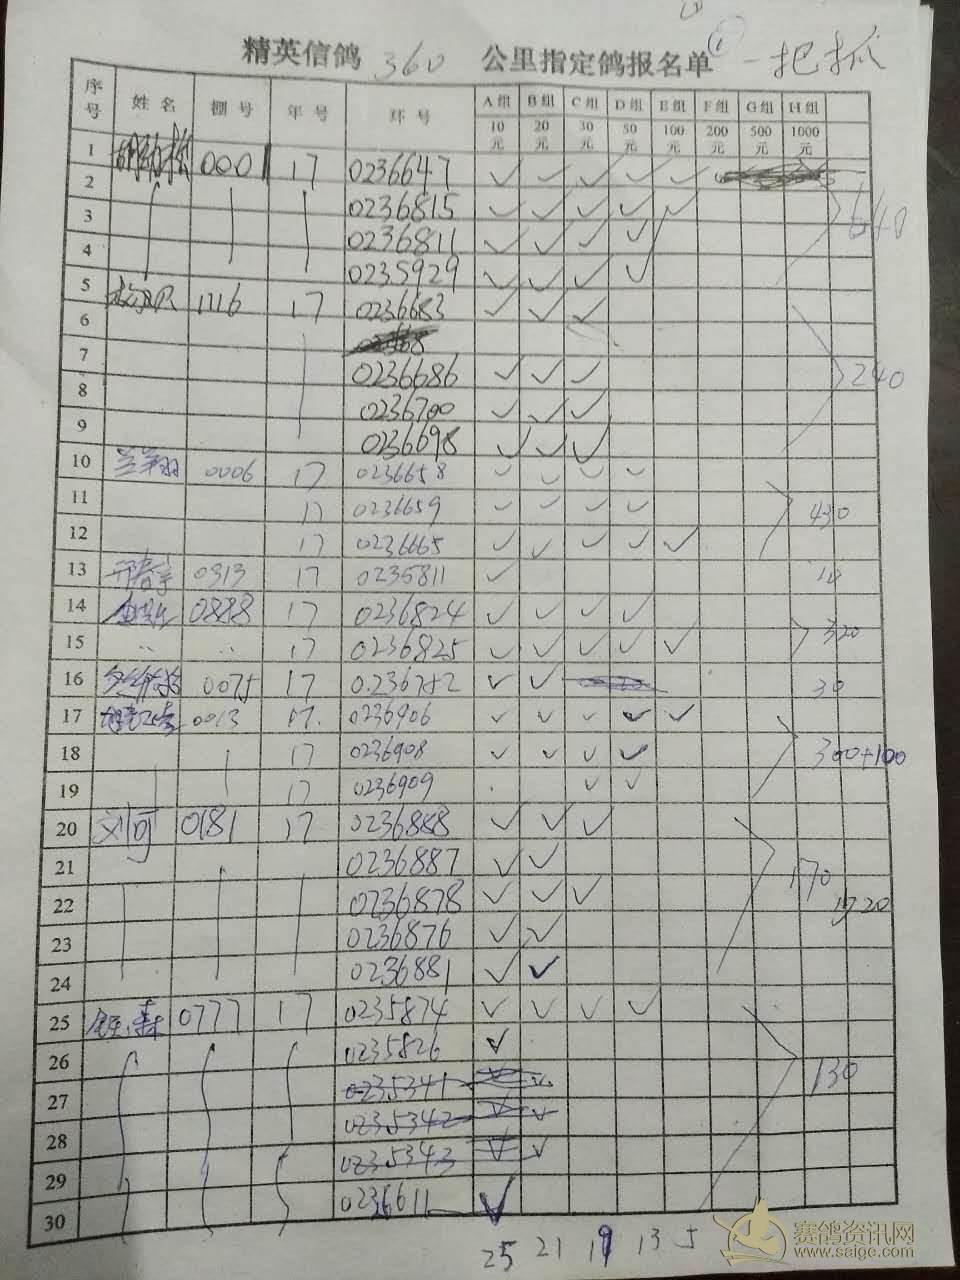 精英信鸽 360 公里指定鸽报名单 ① 一把抓
序号 姓名 棚号 年号 环号 A组 B组 C组 D组 E组 F组 G组 H组
10元 20元 30元 50元 100元 200元 500元 1000元
1 0001 17 0236647 ✓ ✓ ✓ ✓ ✓
2 0236815 ✓ ✓ ✓ ✓ ✓ 640
3 0236811 ✓ ✓ ✓ ✓
4 0235929 ✓ ✓ ✓ ✓
5 1116 17 0236683 ✓ ✓ ✓
6
7 0236686 ✓ ✓ ✓ 240
8 0236700 ✓ ✓ ✓
9 0236698 ✓ ✓ ✓
10 0006 17 0236658 ✓ ✓ ✓ ✓
11 17 0236659 ✓ ✓ ✓ ✓ 430
12 17 0236665 ✓ ✓ ✓ ✓ ✓
13 0313 17 0235811 ✓ 10
14 0888 17 0236824 ✓ ✓ ✓ ✓
15 17 0236825 ✓ ✓ ✓ ✓ ✓ 320
16 0075 17 0236752 ✓ ✓ 30
17 0013 17 0236906 ✓ ✓ ✓ ✓ ✓
18 17 0236908 ✓ ✓ ✓ ✓ 300+100
19 17 0236909 ✓ ✓
20 刘可 0181 17 0236888 ✓ ✓ ✓
21 0236887 ✓ ✓ 170
22 0236878 ✓ ✓ ✓ 1920
23 0236876 ✓ ✓
24 0236881 ✓ ✓
25 0777 17 0235874 ✓ ✓ ✓ ✓
26 0235826 ✓
27 0235341 130
28 0235342
29 0235343
30 0236611 ✓
25 21 19 13 5
赛鸽资讯网
www.saige.com